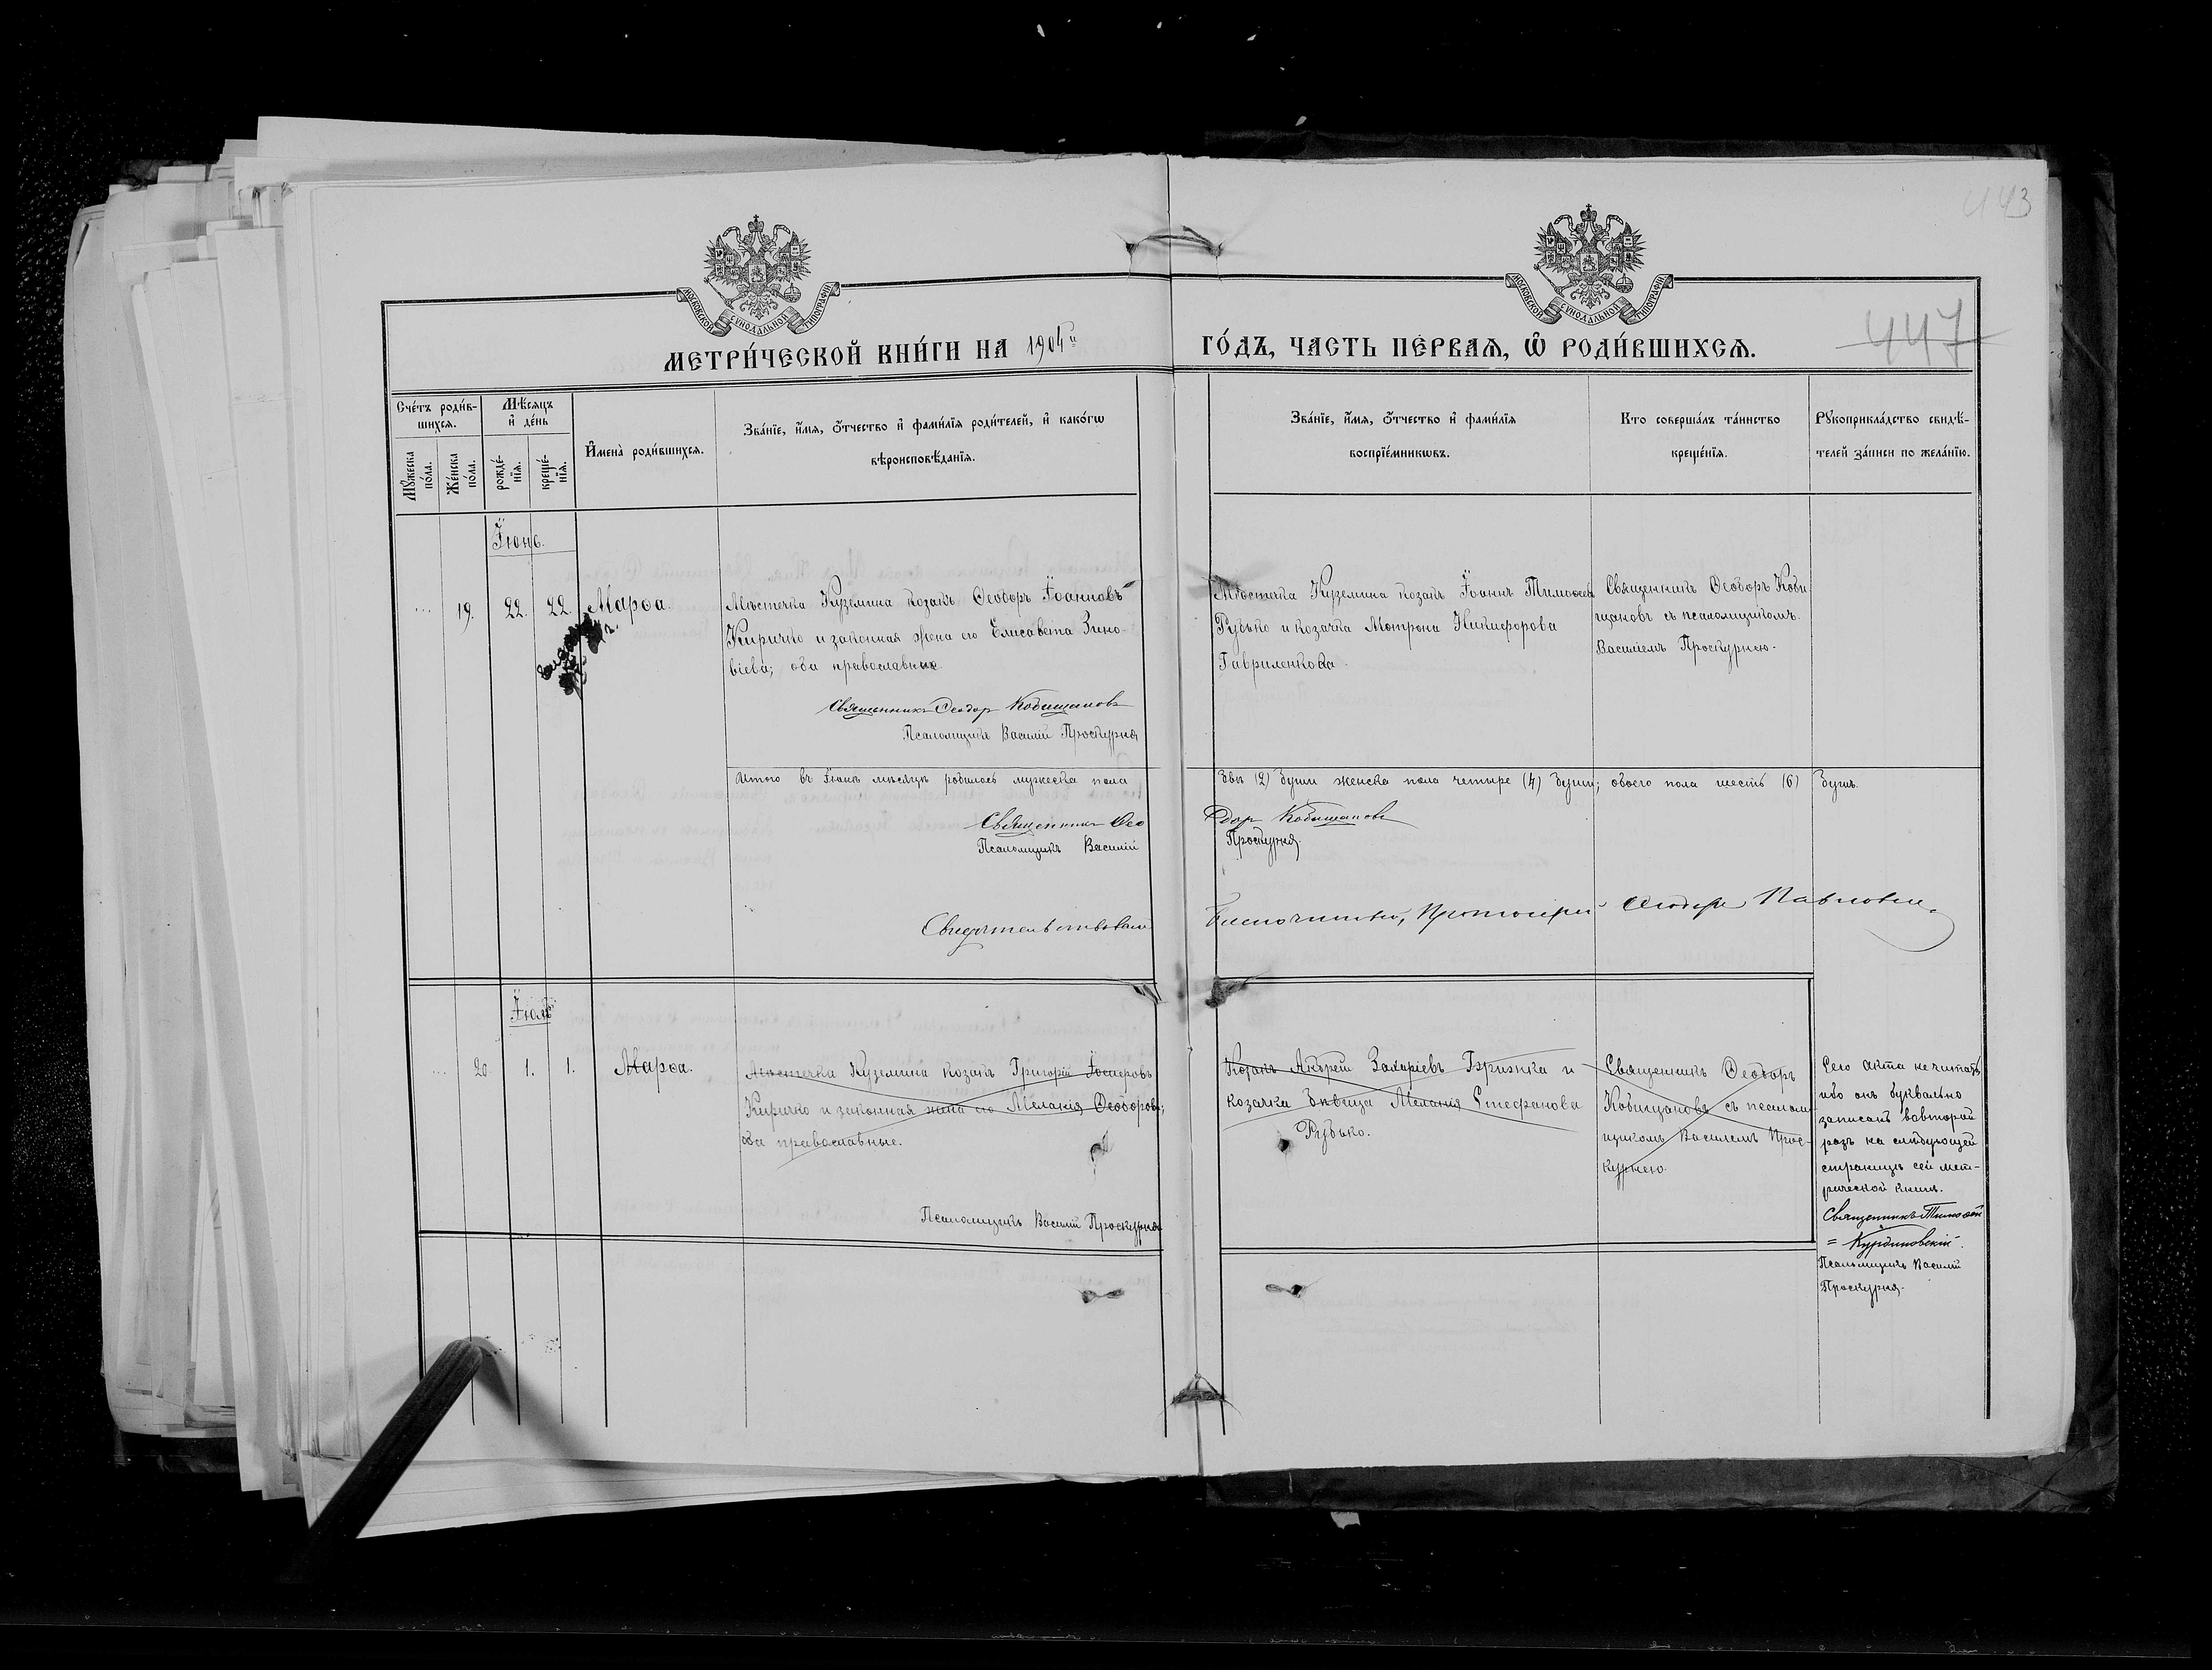 443
МОСКОВСКОЙ СУНОДАЛЬНОЙ ТИПОГРАФІИ
МОСКОВСКОЙ СУНОДАЛЬНОЙ ТИПОГРАФІИ
МЕТРИ́ЧЕСКОЙ КНИ́ГИ НА 1904й
ГО́ДЪ, ЧАСТЬ ПЕ́РВАЯ, Ѽ РОДИ́ВШИХСЯ.
447
Сче́тъ роди́в-
шихся.
Мꙋ́жеска по́ла.
Же́нска по́ла.
Мѣ́сяцъ и҆ де́нь
рожде́-нїя.
креще́-нїя.
И҆мена̀ роди́вшихся.
Зва́нїе, и҆́мя, ѻ҆́тчество и҆ фами́лїя роди́телей, и҆ како́гѡ
вѣроисповѣ́данїя.
Зва́нїе, и҆́мя, ѻ҆́тчество и҆ фами́лїя
воспрїе́мникѡвъ.
Кто соверша́лъ та́инство
креще́нїя.
Рꙋкоприкла́дство свидѣ́-
телей за́писи по жела́нїю.
Іюнь.
19. 22. 22. Марѳа.
Мѣстечка Куземина козакъ Ѳеодоръ Іоанновъ
Киричко и законная жена его Елисавета Зино-
віева; оба православные.
Священникъ Ѳеодор Кобищановъ
Псаломщикъ Василій Проскурня
Мѣстечка Куземина козакъ Іоаннъ Тимоѳеев
Рудько и козачка Мотрона Никифорова
Гавриленкова.
Священникъ Ѳеодоръ Коби
щановъ съ псаломщикомъ
Василіемъ Проскурнею.
Итого въ Іюнѣ мѣсяцѣ родилось мужеска пола
двѣ (2) души женска пола четыре (4) души; обоего пола шесть (6) душъ.
Священникъ Ѳео
дор Кобищановъ
Псаломщикъ Василій
Проскурня.
Свидѣтельствовалъ
Благочинный, Протоіерей Ѳеодоръ Павловъ
Іюль
20. 1. 1. Марѳа.
Мѣстечка Куземина козакъ Григорій Іосифовъ
Киричко и законная жена его Меланія Ѳеодорова;
оба православные.
Псаломщикъ Василій Проскурня
Козакъ Андрей Захаріевъ Гришка и
козачка дѣвица Меланія Стефанова
Рудько.
Священникъ Ѳеодоръ
Кобищановъ съ псалом
щикомъ Василіемъ Прос-
курнею.
Сего акта не читать
ибо онъ буквально
записанъ вавторой
разъ на слѣдующей
страницѣ сей мет-
рической книги.
Священникъ Тимоѳей
= Курдиновскій.
Псаломщикъ Василій
Проскурня.